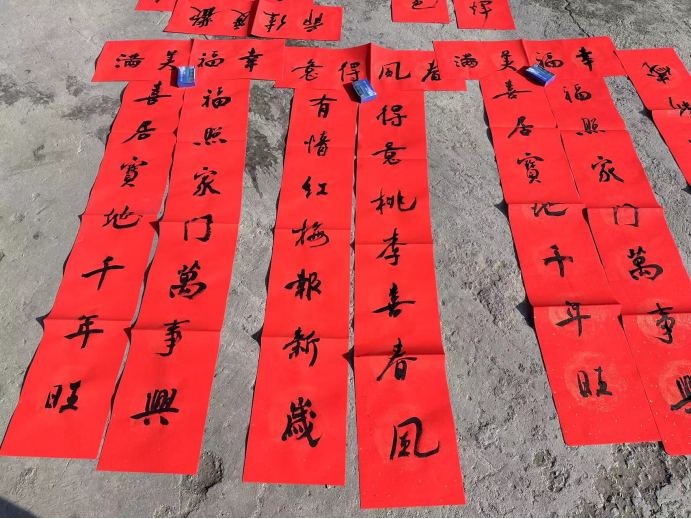 幸福美满
福照家门萬事興
喜居寳地千年旺
春風得意
得意桃李喜春風
有情红梅報新歲
幸福美满
福照家门萬事興
喜居寳地千年旺